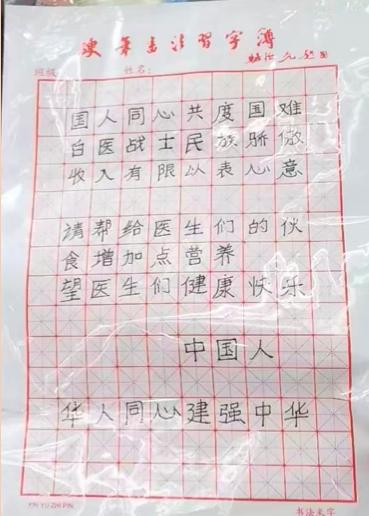 硬笔书法习字簿
班级: 姓名:
国人同心共度国难
白医战士民族骄傲
收入有限以表心意
请帮给医生们的伙
食增加点营养
望医生们健康快乐
中国人
华人同心建强中华
YIN YU ZHI PIN